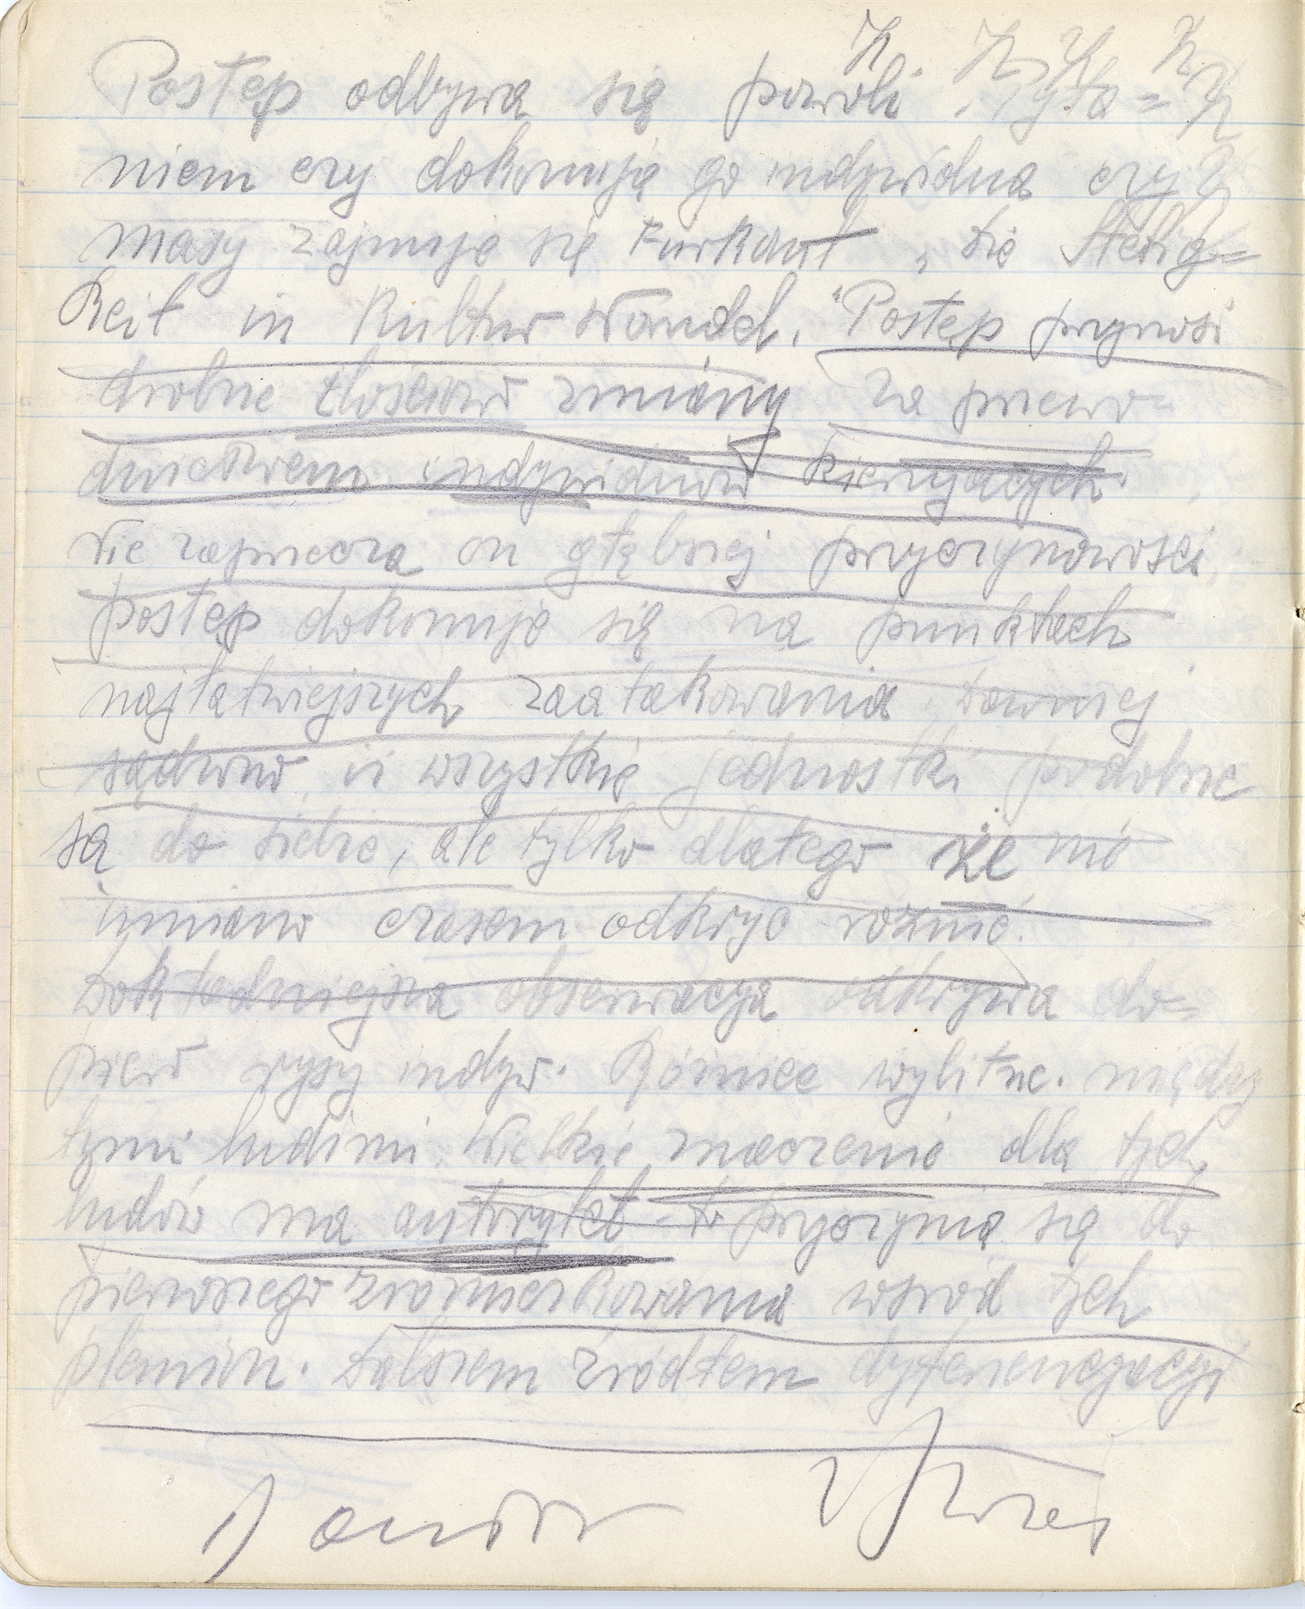 Postęp odbywa się powoli. Pyta=
niem czy dokonują go indywidua czy
masy zajmuje się Furkant „die Stetig=
keit in Kultur Wandel. "Postęp przynosi
drobne ilościowe zmiany za przewo=
dnictwem indywiduów kierujących.
Nie zaprzecza on głębszej przyczynowości,
postęp dokonuje się na punktach
najłatwiejszych zaatakowania. Dawniej
sądzono, iż wszystkie jednostki podobne
są do siebie, ale tylko dlatego że nie
umiano czasem odkryć różnic.
Dokładniejsza obserwacja odkrywa do=
piero rysy indyw. Różnice wybitne. między
tymi ludźmi. Wielkie znaczenie dla tych
ludów ma autorytet - to przyczynia się do
pierwszego zróżnicowania wśród tych
plemion. Dalszem źródłem dyferencjacji